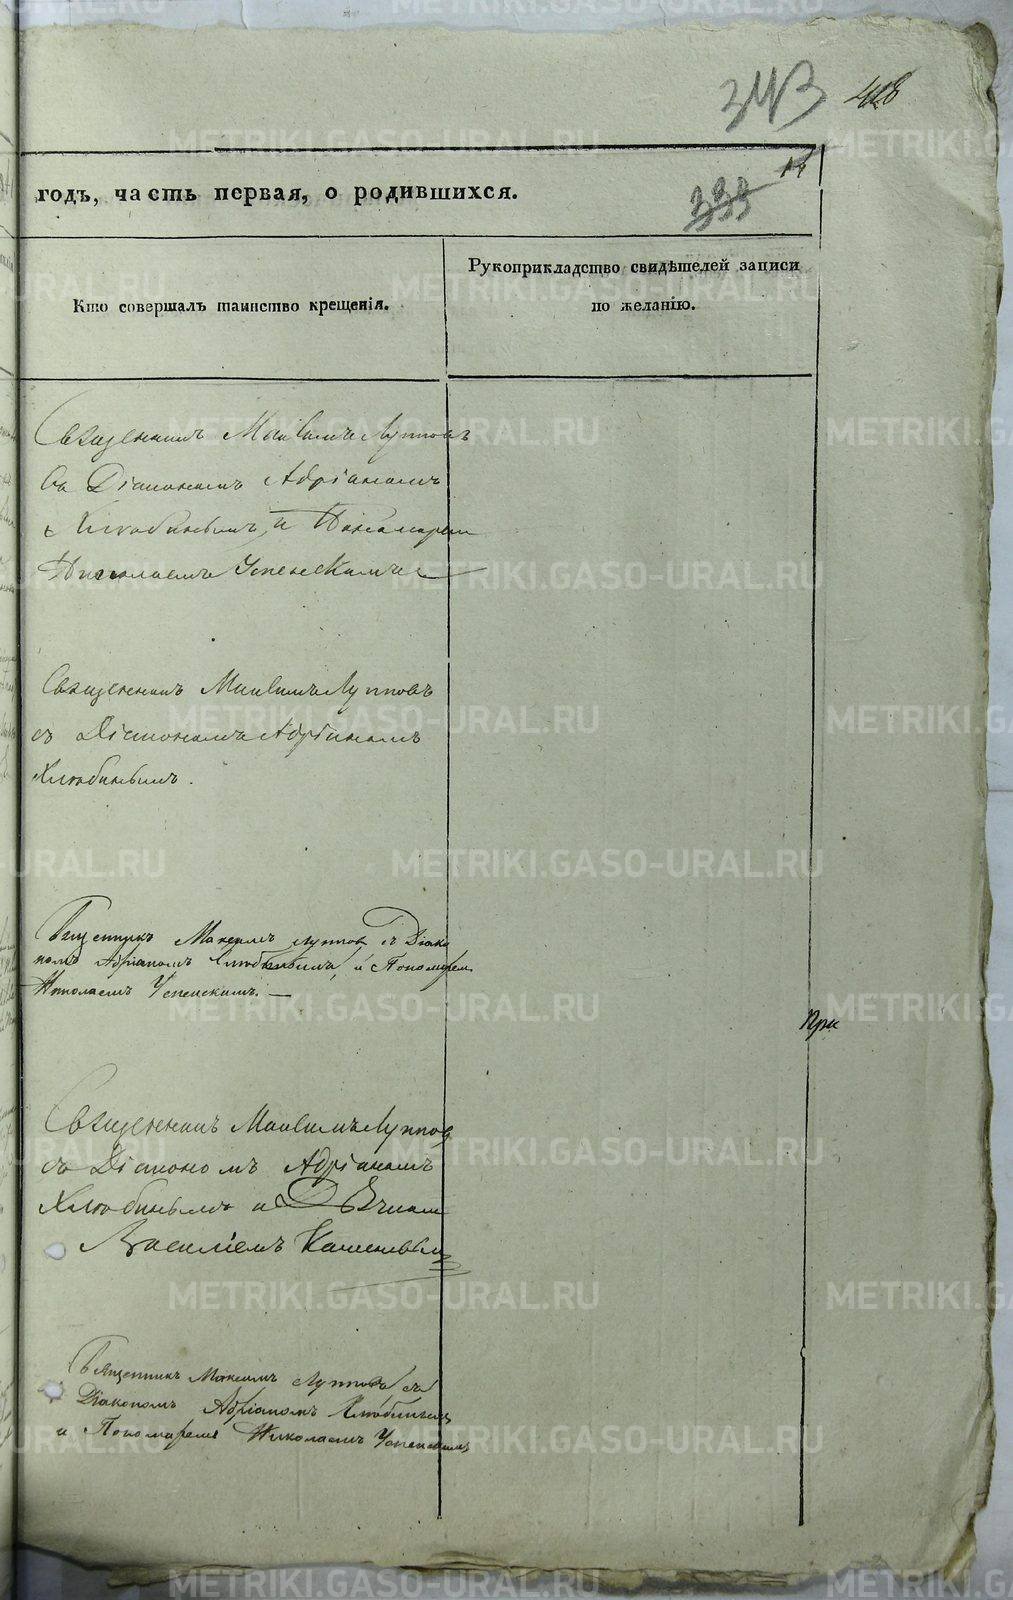 343 418
14
годъ, часть первая, о родившихся.
333
Кто совершалъ таинство крещенія.
Рукоприкладство свидѣтелей записи
по желанію.
Священникъ Максимъ Луповъ
Съ Діакономъ Адріаномъ
Хлюбинымъ, и Пономаремъ
Николаемъ Успенскимъ
Священникъ Максимъ Луповъ
съ Діакономъ Адріаномъ
Хлюбинымъ.
Священникъ Максимъ Луповъ съ Діако
номъ Адріаномъ Хлюбинымъ, и Пономарем
Николаемъ Успенскимъ. —
При
Священникъ Максимъ Луповъ
съ Діакономъ Адріаномъ
Хлюбинымъ и Дьячкомъ
Василіемъ
Священникъ Максимъ Луповъ съ
Діакономъ Адріаномъ Хлюбинымъ
и Пономаремъ Николаемъ Успенскимъ
METRIKI.GASO-URAL.RU